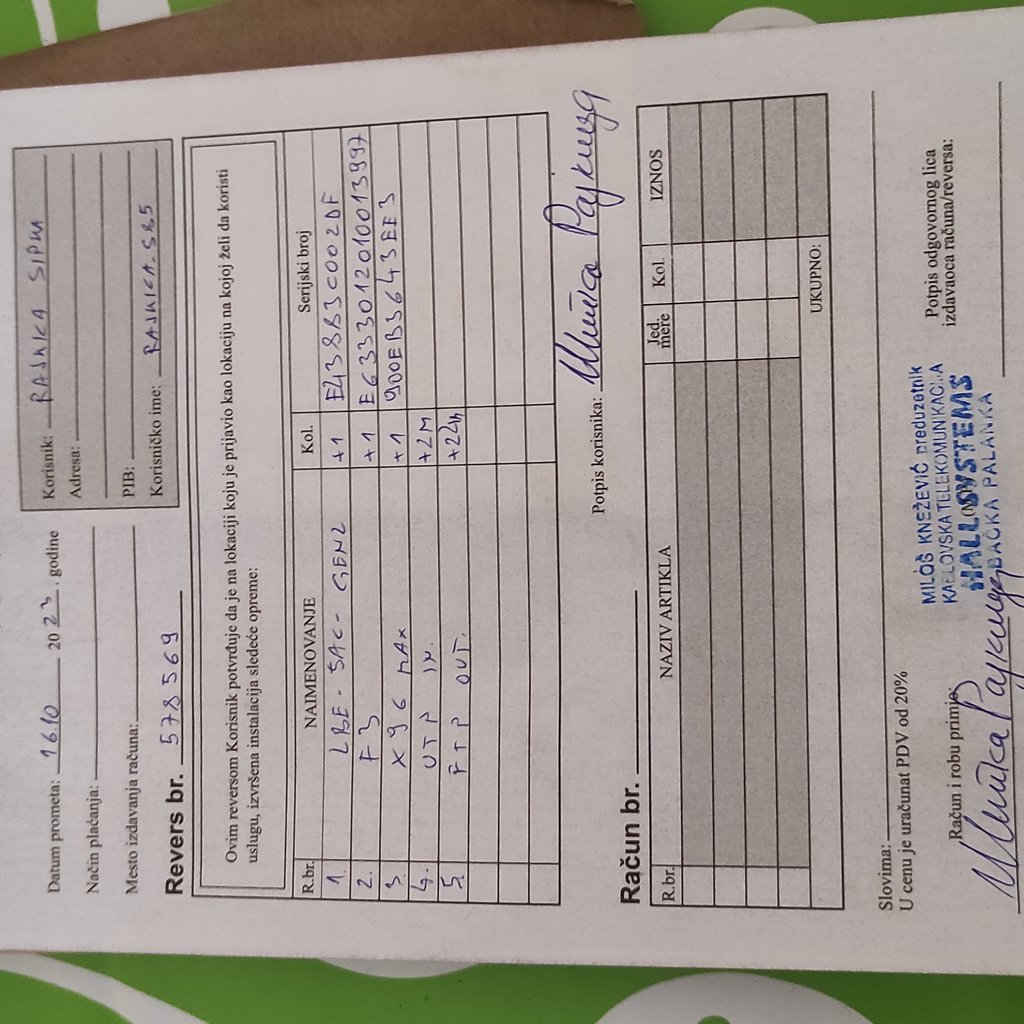 Datum prometa: 16.10 2023. godine
Način plaćanja:
Mesto izdavanja računa:
Korisnik: RAJNICA SIPM
Adresa:
PIB:
Korisničko ime: RAJNICA.SB5
Revers br. 578569
Ovim reversom Korisnik potvrđuje da je na lokaciji koju je prijavio kao lokaciju na kojoj želi da koristi
uslugu, izvršena instalacija sledeće opreme:
R.br. NAIMENOVANJE Kol. Serijski broj
1. LBE-5AC-GEN2 +1 E43883C002DF
2. F3 +1 E6333012010013997
3. X96 MAX +1 900EB3643EE3
4. UTP IN. +2M
5. FTP OUT. +22M
Potpis korisnika: Милића Рајкица
Račun br.
R.br. NAZIV ARTIKLA Jed. mere Kol. IZNOS
UKUPNO:
Slovima:
U cenu je uračunat PDV od 20%
Račun i robu primio:
Potpis odgovornog lica
izdavaoca računa/reversa:
MILOŠ KNEŽEVIĆ preduzetnik
KABLOVSKA TELEKOMUNIKACIJA
HALLO SYSTEMS
BAČKA PALANKA